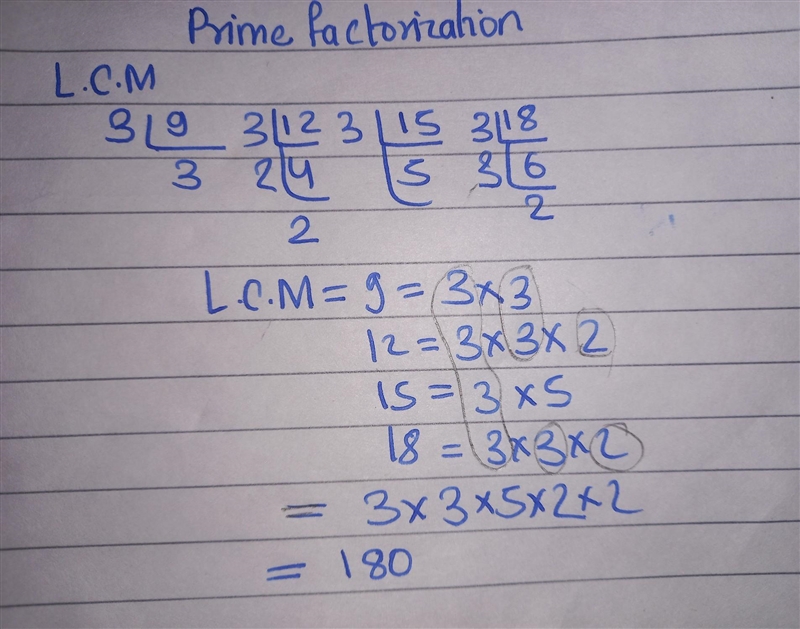 Prime Factorization
L.C.M
3 9 3 12 3 15 3 18
3 2 4 5 3 6
2 2
L.C.M = 9 = 3×3
12 = 3×3×2
15 = 3×5
18 = 3×3×2
= 3×3×5×2×2
= 180